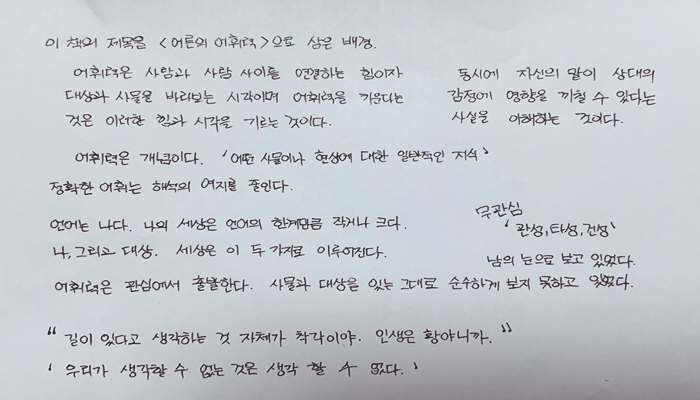 이 책의 제목을 <어른의 어휘력>으로 삼은 배경.
어휘력은 사람과 사람 사이를 연결하는 힘이자
대상과 사물을 바라보는 시각이며 어휘력을 키운다는
것은 이러한 힘과 시각을 기르는 것이다.
동시에 자신의 말이 상대의
감정에 영향을 끼칠 수 있다는
사실을 이해하는 것이다.
어휘력은 개념이다. '어떤 사물이나 현상에 대한 일반적인 지식'
정확한 어휘는 해석의 여지를 줄인다.
언어는 나다. 나의 세상은 언어의 한계만큼 작거나 크다.
나, 그리고 대상. 세상은 이 두 가지로 이루어진다.
무관심
'관성, 타성, 건성'
남의 눈으로 보고 있었다.
어휘력은 관심에서 출발한다. 사물과 대상을 있는 그대로 순수하게 보지 못하고 있었다.
"길이 있다고 생각하는 것 자체가 착각이야. 인생은 황야니까."
'우리가 생각할 수 없는 것은 생각 할 수 없다.'